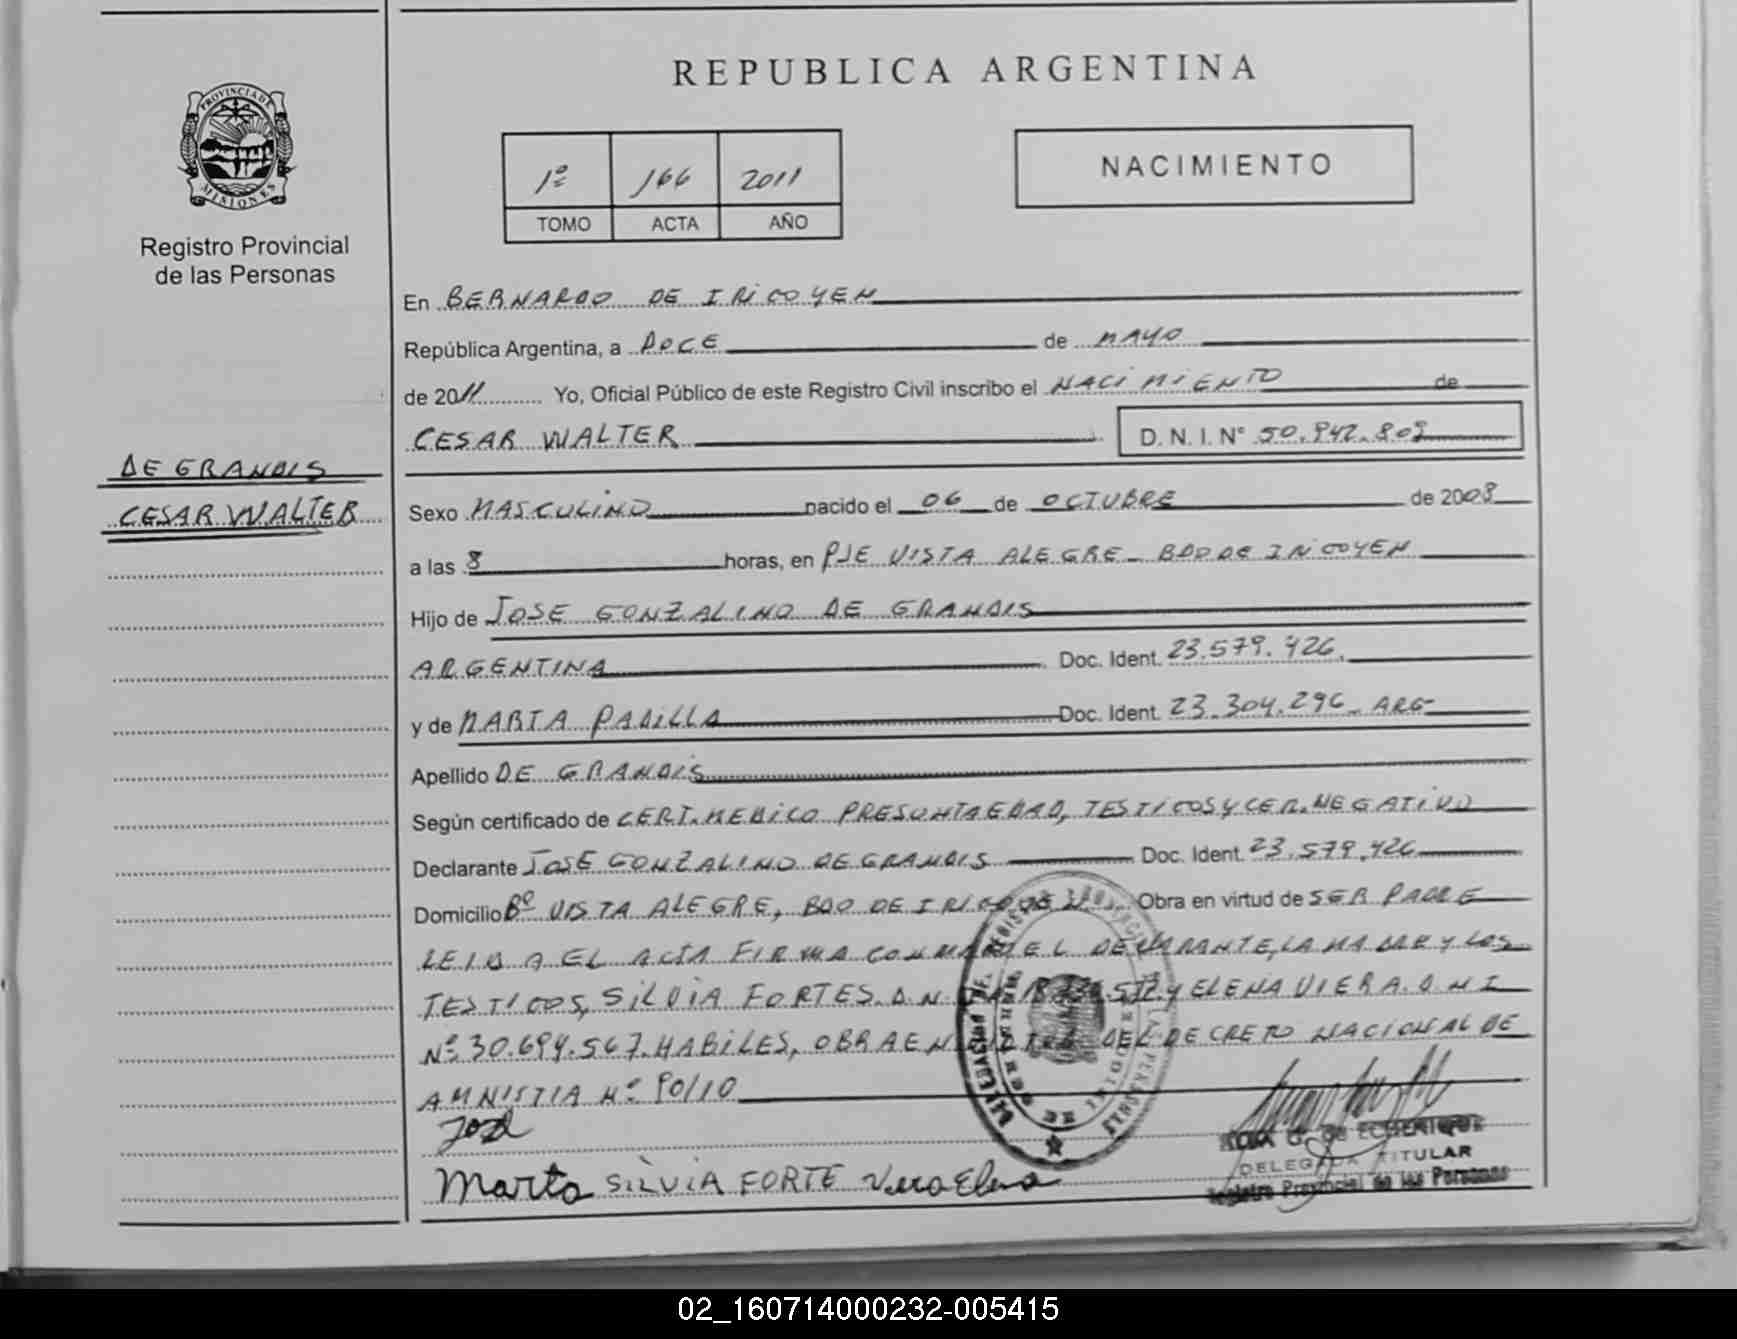 REPUBLICA ARGENTINA
PROVINCIA DE
MISIONES
Registro Provincial
de las Personas
1º 166 2011
TOMO ACTA AÑO
NACIMIENTO
En BERNARDO DE IRIGOYEN
República Argentina, a DOCE de MAYO
de 2011 Yo, Oficial Público de este Registro Civil inscribo el NACIMIENTO de
CESAR WALTER D. N. I. Nº 50.942.809
DE GRANDIS
CESAR WALTER
Sexo MASCULINO nacido el 06 de OCTUBRE de 2008
a las 8 horas, en PJE VISTA ALEGRE - BDO DE IRIGOYEN
Hijo de JOSE GONZALINO DE GRANDIS
ARGENTINA Doc. Ident. 23.579.426.
y de MARTA PADILLA Doc. Ident. 23.304.296 - ARG-
Apellido DE GRANDIS
Según certificado de CERT. MEDICO PRESUNTA EDAD, TESTIGOS Y CER. NEGATIVO
Declarante JOSE GONZALINO DE GRANDIS Doc. Ident. 23.579.426
Domicilio Bº VISTA ALEGRE, BDO DE IRIGOYEN Obra en virtud de SER PADRE
LEIDA EL ACTA FIRMA CONMIGO EL DECLARANTE, LA MADRE Y LOS
TESTIGOS, SILVIA FORTES. D.N. Y ELENA VIERA. D N I
Nº 30.694.567. HABILES, OBRA EN DEL DECRETO NACIONAL DE
AMNISTIA Nº 90/10
José
Marta SILVIA FORTE Viera Elena
ROSA G. de ECHERIQUE
DELEGADA TITULAR
Registro Provincial de las Personas
02_160714000232-005415